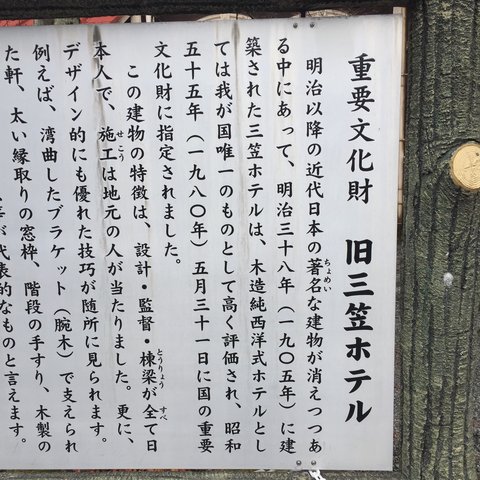 重要文化財　旧三笠ホテル
明治以降の近代日本の著名な建物が消えつつあ
る中にあって、明治三十八年（一九〇五年）に建
築された三笠ホテルは、木造純西洋式ホテルとし
ては我が国唯一のものとして高く評価され、昭和
五十五年（一九八〇年）五月三十一日に国の重要
文化財に指定されました。
この建物の特徴は、設計・監督・棟梁が全て日
本人で、施工は地元の人が当たりました。更に、
デザイン的にも優れた技巧が随所に見られます。
例えば、湾曲したブラケット（腕木）で支えられ
た軒、太い縁取りの窓枠、階段の手すり、木製の
が代表的なものと言えます。